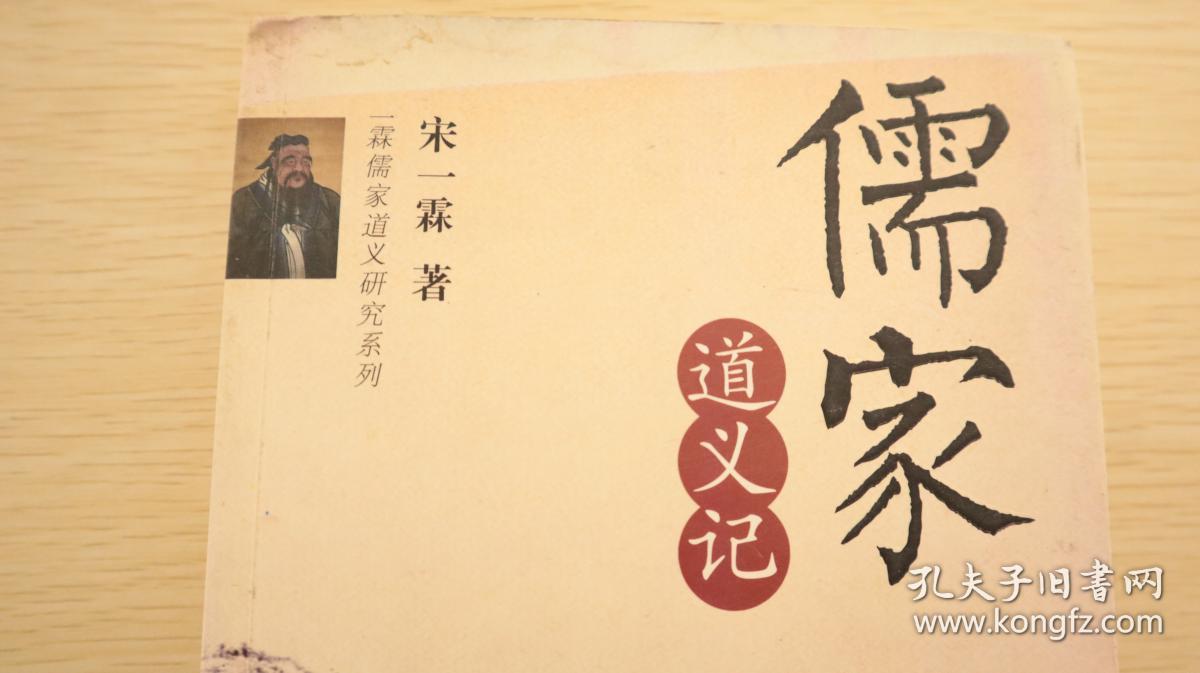 儒家
道义记
宋一霖 著
一霖儒家道义研究系列
孔夫子旧书网
www.kongfz.com